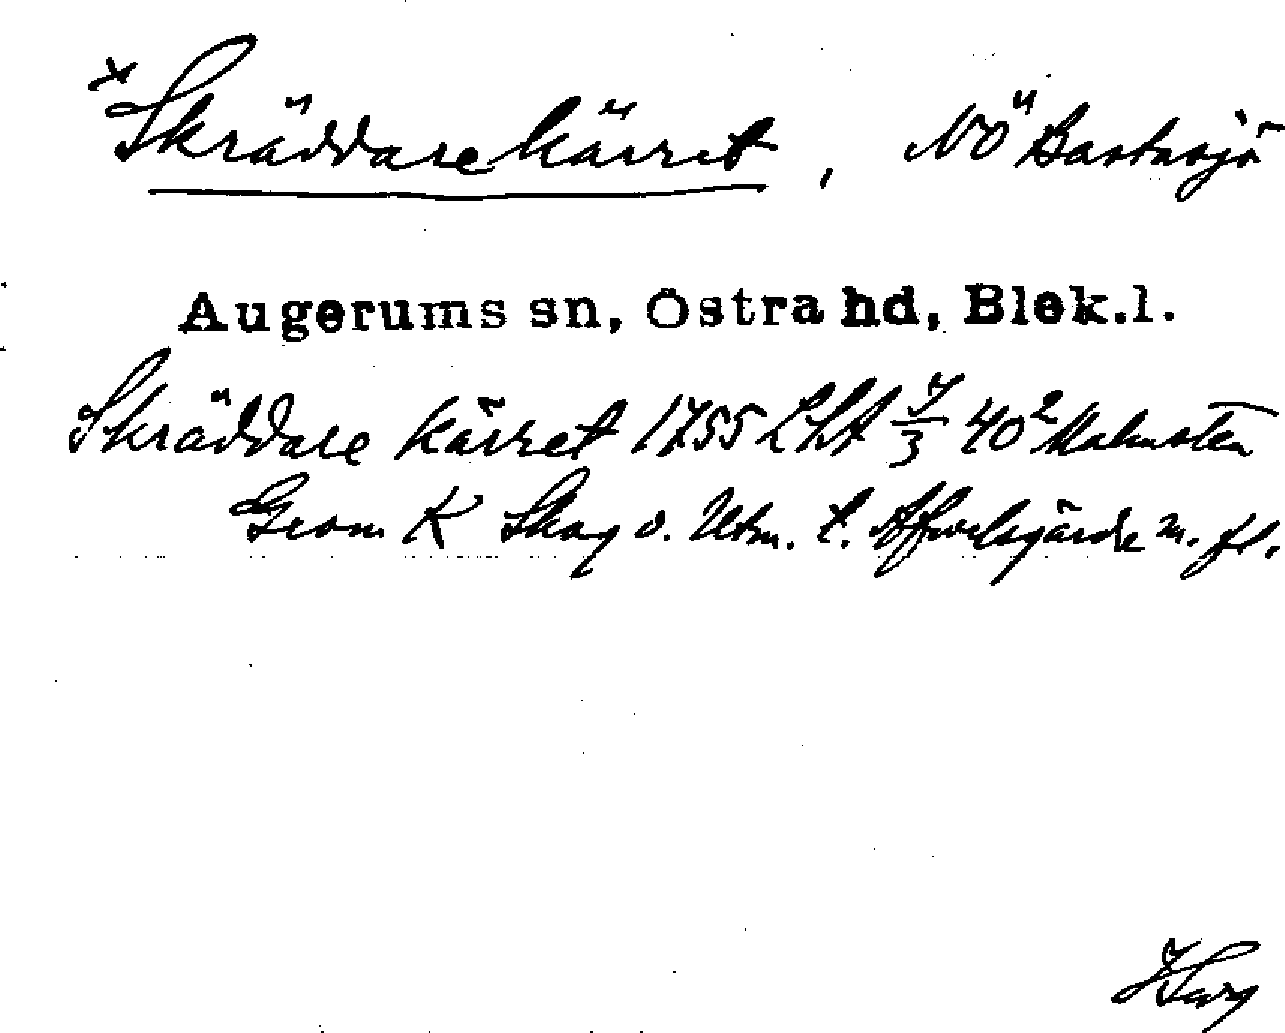 *Skräddarekärret, NÖ Bastasjö
Augerums sn, Östra hd, Blek.l.
Skräddare kärret 1755 LhA 7/3 40² Malmsten
Geom K Skog o. Utm. t. Afvelsgärde m. fl.